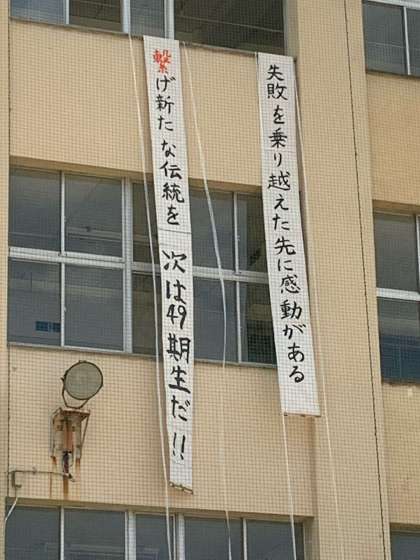 失敗を乗り越えた先に感動がある
繋げ新たな伝統を 次は49期生だ!!